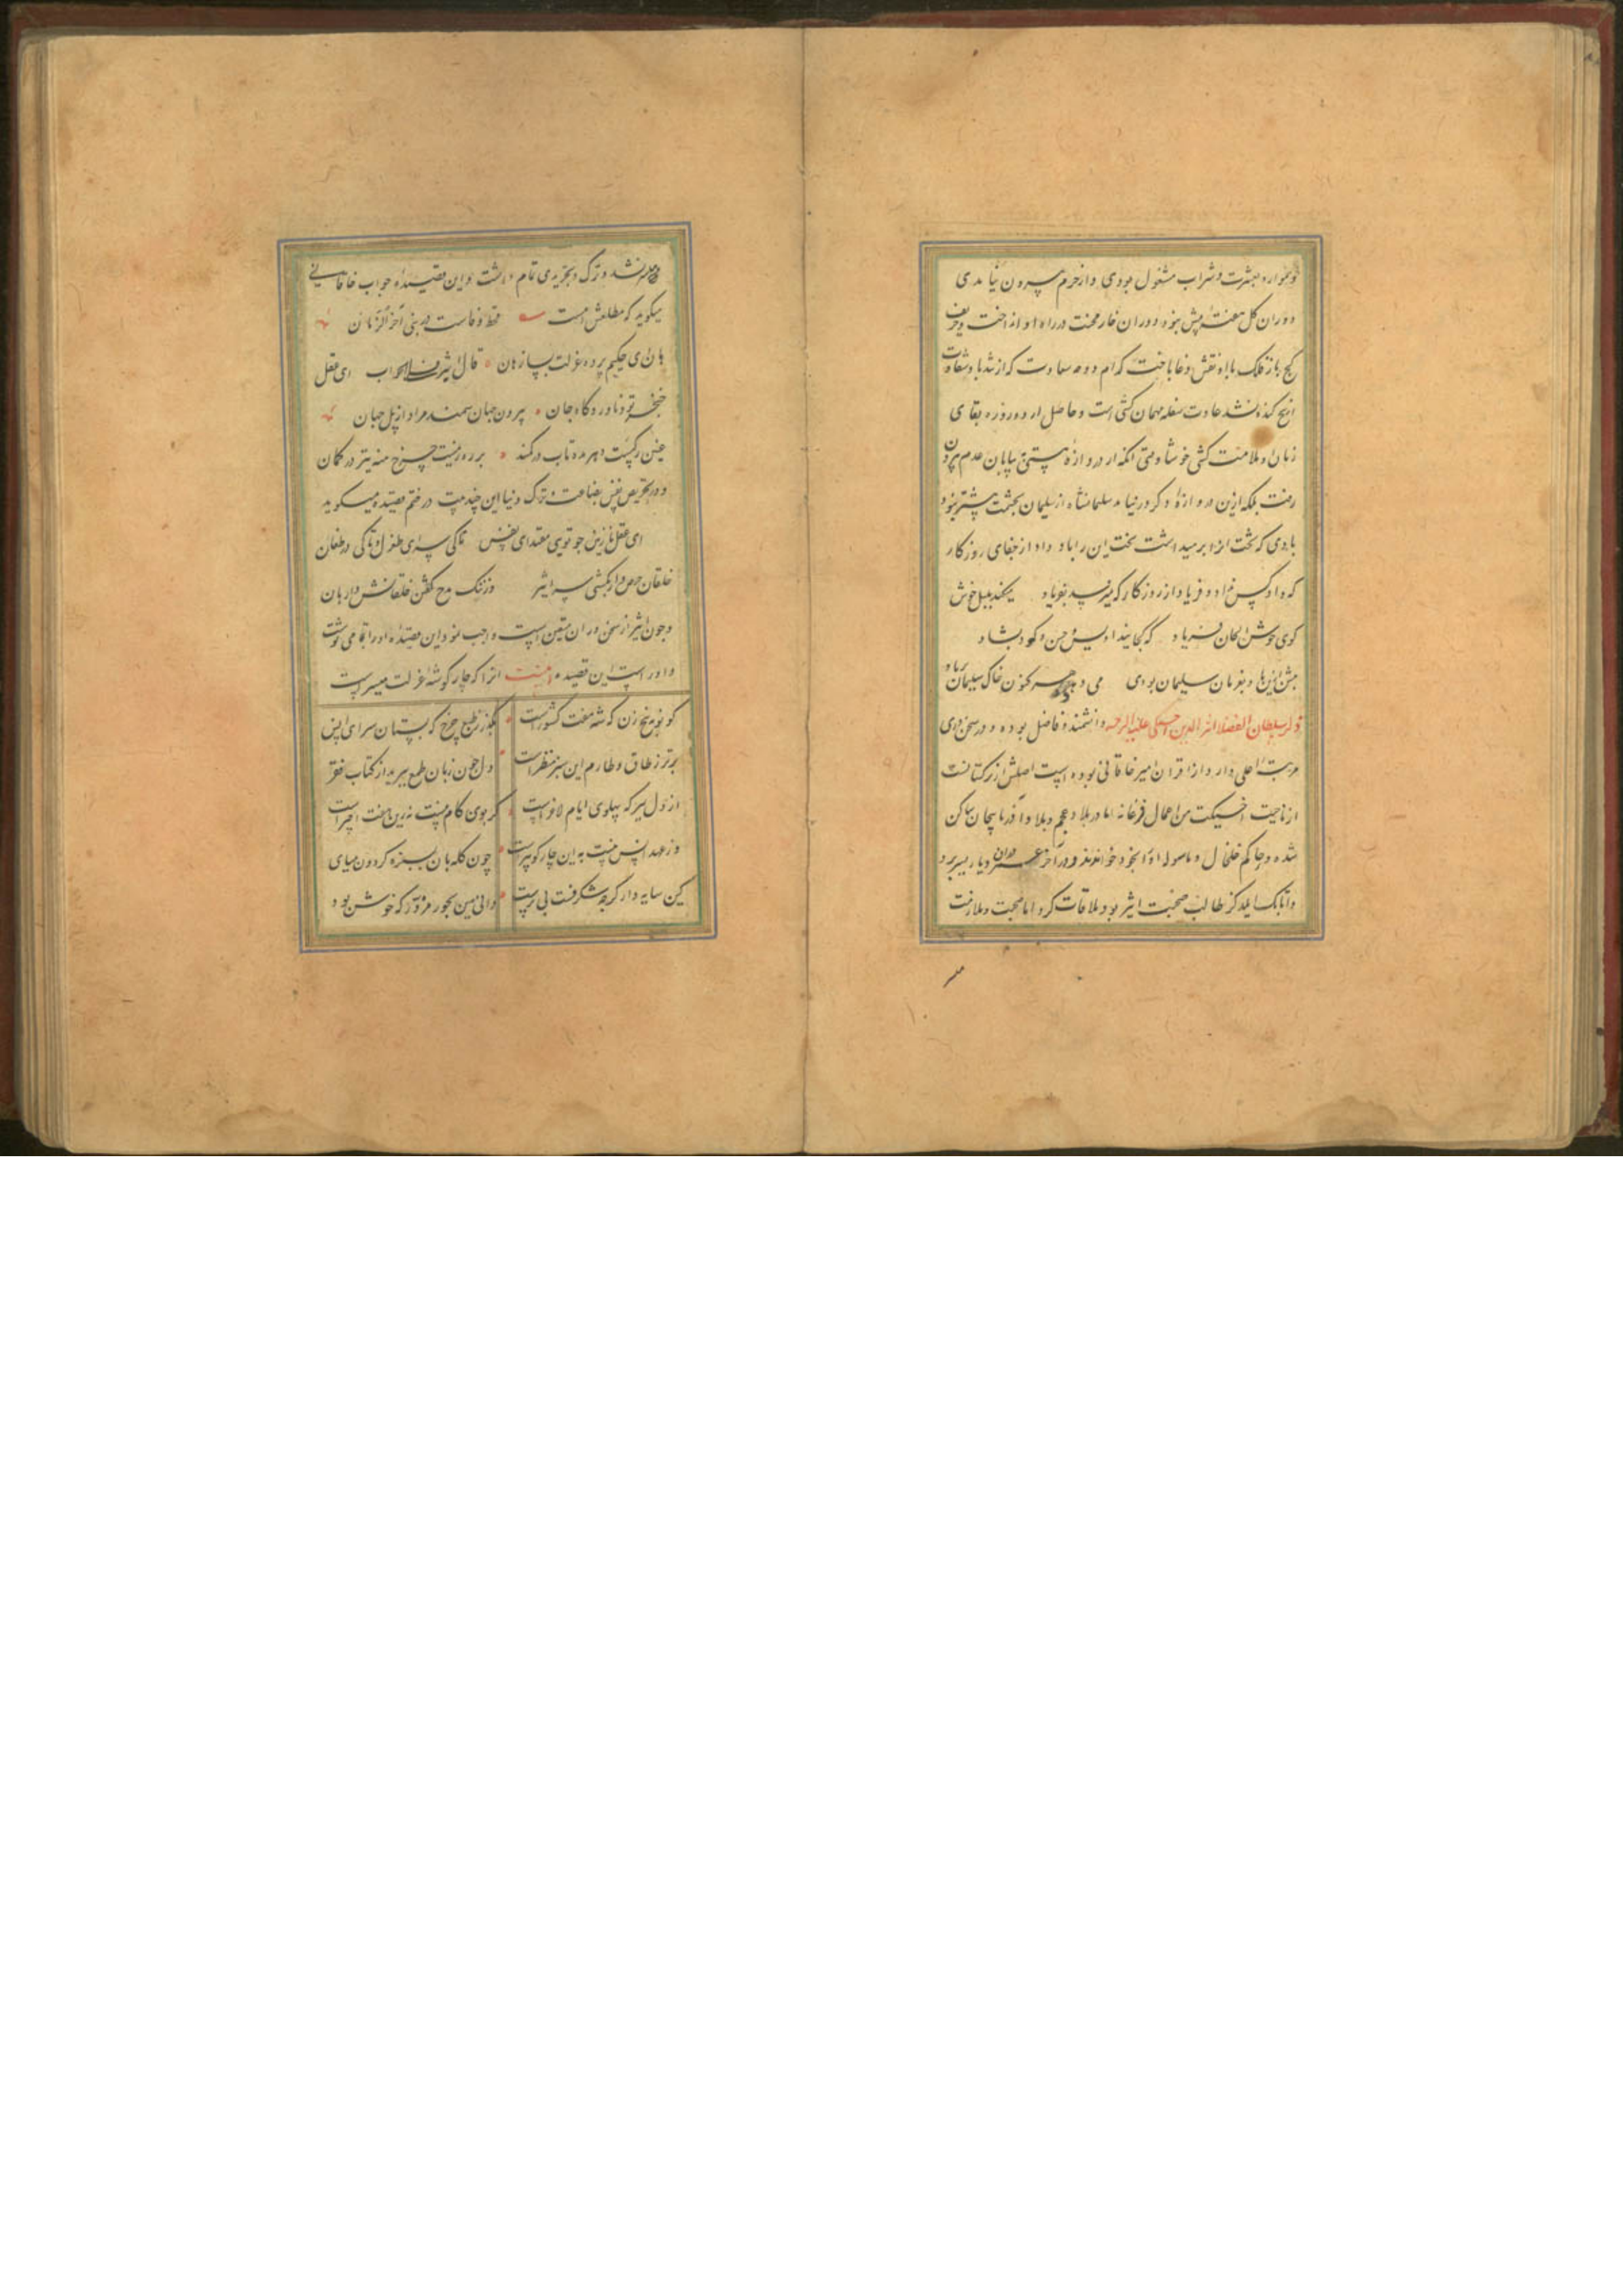 و همواره بعشرت و شراب مشغول بودی و از حرم بیرون نیامدی
دوران گل هفته بیش نبود و دوران خار محنت در راه او انداخت و حریف
کج باز فلک با او نقش دغا باخت کدام دوحه سعادت که از تندباد شقاوت
کنده نشد عادت سفله مهمان کشی است و حاصل از دو روزه بقای
زمان او ملامت کشی خوشا وقتی آنکه از دروازه هستی به بیابان عدم بیرون
رفت بلکه ازین دروازه دگر در نیامد سلیمانشاه از سلیمان بحشمت بیشتر نبود
بادی که تخت او را بر میداشت تخت این را باد داد از جفای روزگار
که داد کس نداد و فریاد از روزگار که نمیرسد بفریاد میکند بلبل خوش
گوی خوش الحان فریاد که کجایند اویس و حسن و کو دلشاد
پیش ازین باد بفرمان سلیمان بودی می‌دهد کنون خاک سلیمان بر باد
ذکر سلطان الفضلا اثیر الدین اخسیکتی علیه الرحمه دانشمند و فاضل بوده و در سخن‌وری
مرتبه اعلی دارد و از اقران امیر خاقانی بوده است اصلش از ترکستانست
از ناحیت اخسیکت من اعمال فرغانه اما در بلاد عجم و بلاد آذربایجان ساکن
شده و حاکم خلخال و ماسوله او را بخود خواندند و در آخر عمر در آن دیار بسر برد
و اتابک ایلدگز طالب صحبت اثیر بود و ملاقات کرد اما صحبت و ملازمت
میسر نشد و ترک و تجریدی تمام داشت و این قصیده جواب خاقانی
میگوید که مطلعش اینست قحط وفاست در بنی آخر الزمان
هان ای حکیم پرده عزلت بساز هان قال اثیر فی الجواب ای عقل
خنجر تو و ناوردگاه جان بیرون جهان سمند مراد از پل جهان
عین رگیست دهر مده تاب در کمند بر ره زنیست چرخ منه تیر در کمان
و در تحریض نفس بقناعت و ترک دنیا این چند بیت در ختم قصیده میگوید
ای عقل نازنین چو تویی مقتدای نفس تا کی سرای طغرل و تا کی در طغان
خلقان حرص را بکش از سر اثیر وز ننگ مدح گفتن خلقانش وارهان
و چون اثیر از سخن‌وران متعین است واجب نمود این قصیده او را بتمامی نوشت
و او راست این قصیده اینست آنرا که چار گوشه عزلت میسر است
گو نوبه پنج زن که شه هفت کشور است بگذر ز طبع چرخ که بستان سرای انس
برتر ز طاق و طارم این سبز منظر است دل چون زبان طمع ببرید از کتاب فقر
از دل ببر که پهلوی ایام لاغر است گر بوی کام نیست نه زین هفت اختر است
وز عهد انس نیست نه این چار گوهر است چون گله‌بان سبزه گردون میای
کین سایه‌دار گرچه شگرفت بی بر است دانی نمین بخور مزور که خوش بود